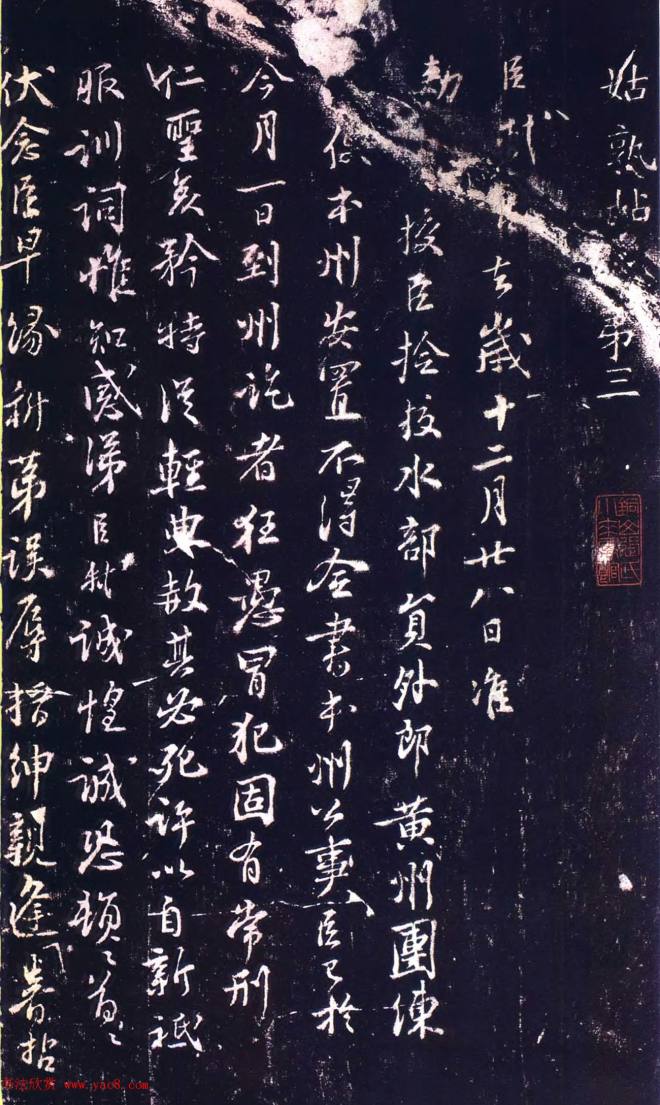 姑熟帖 第三
臣軾言去歲十二月廿八日准
勅授臣撿挍水部員外郎黃州團練
使本州安置不得僉書本州公事臣已於
今月一日到州訖者狂愚冒犯固有常刑
仁聖哀矜特從輕典赦其必死許以自新祗
服訓詞惟知感涕臣軾誠惶誠恐頓〻首〻
伏念臣早緣科第誤辱搢紳親逢睿哲
书法欣赏 www.yac8.com